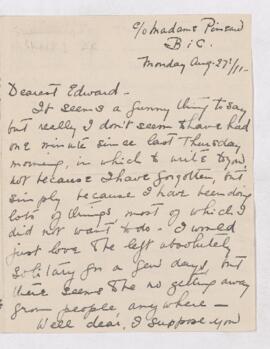 c/o Madame Pineau
Bic.
Monday Aug. 27/11-
Dearest Edward-
It seems a funny thing to say
but really I don't seem to have had
one minute since last Thursday
morning, in which to write to you
not because I have forgotten, but
simply because I have been doing
lots of things, most of which I
did not want to do - I would
just love to be left absolutely
solitary for a few days, but
there seems to be no getting away
from people anywhere -
Well dear, I suppose you